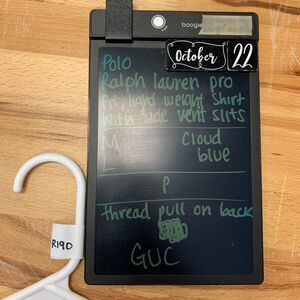 boogie
October 22
Polo
Ralph lauren pro
fit light weight shirt
with side vent slits
M
L
cloud
blue
P
thread pull on back
GUC
R190